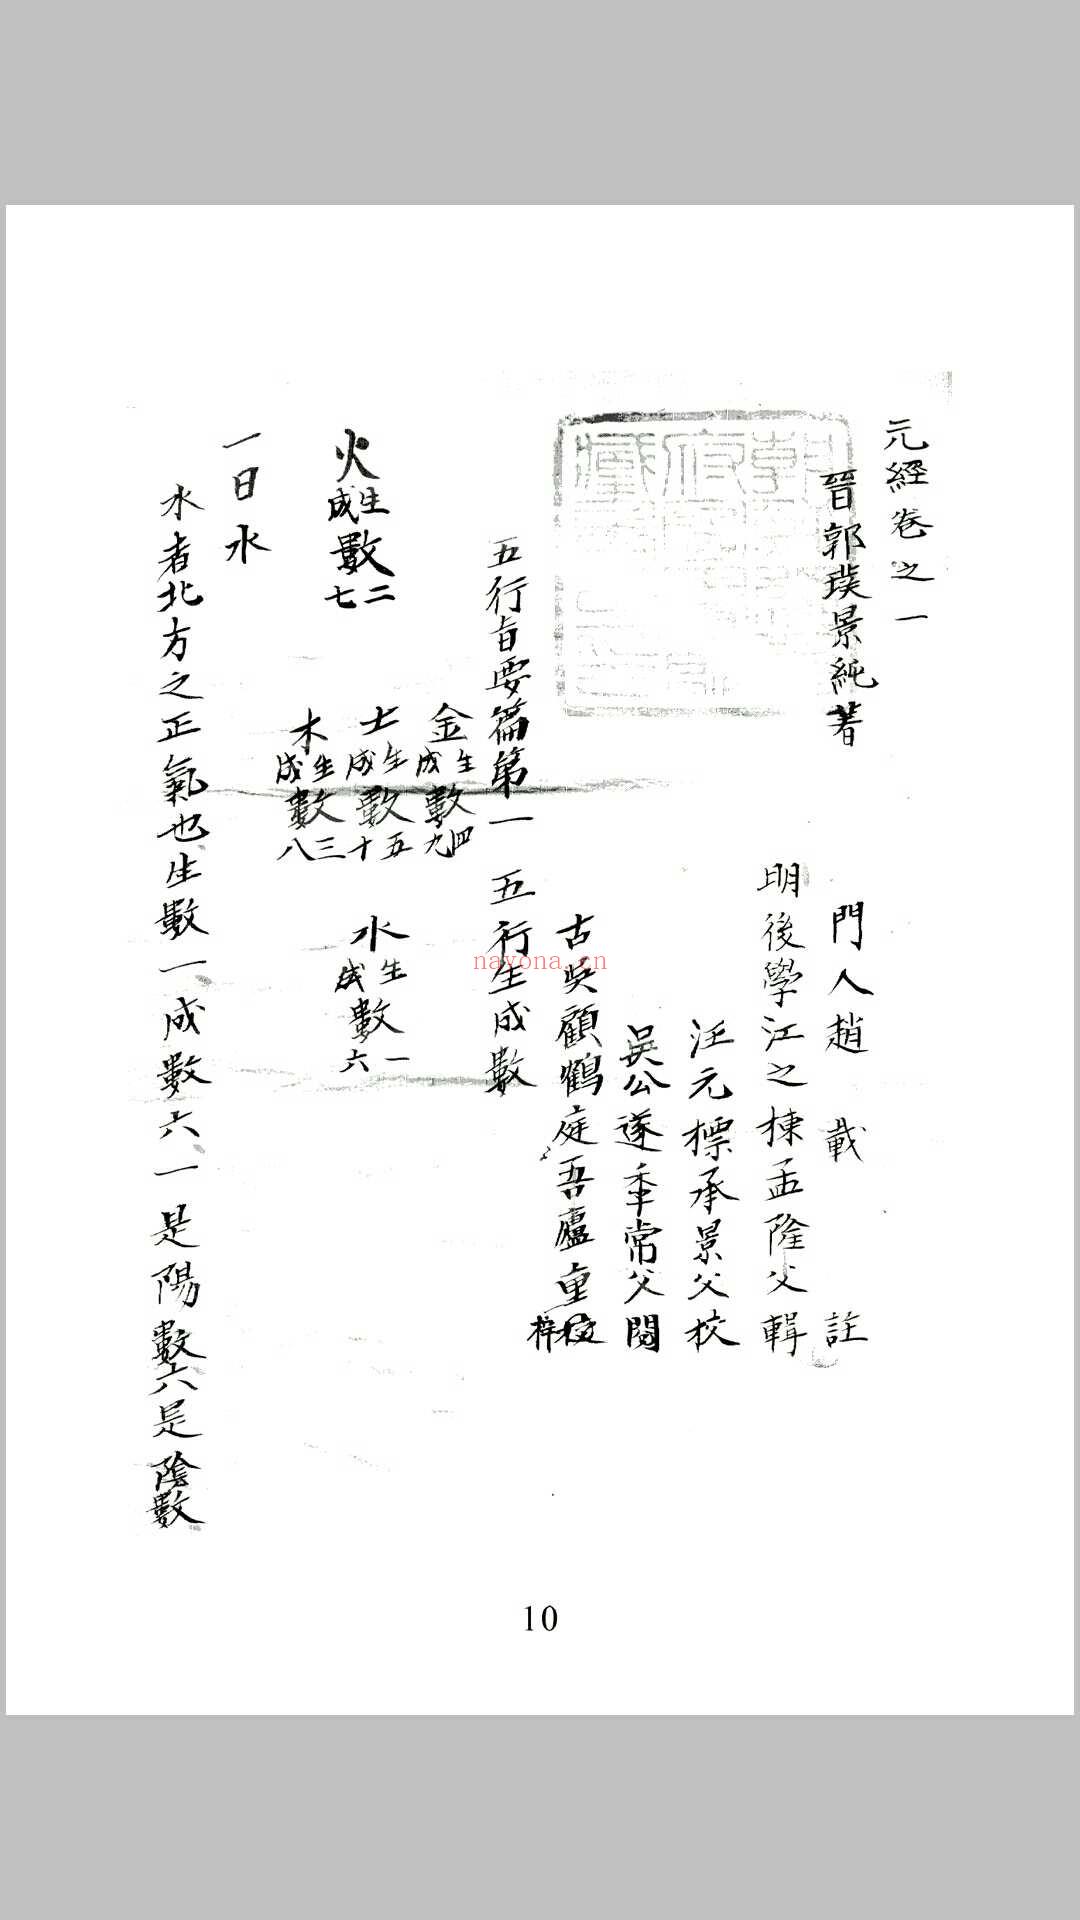 元經卷之一
晉郭璞景純著
門人趙載註
明後學江之棟孟隆父輯
汪元標承景父校
吳公遂季常父閱
古吳顧鶴庭吾廬重校梓
五行旨要篇第一 五行生成數
金生成數四九
土生成數五十
木生成數三八
火生成數二七
水生成數一六
一曰水
水者北方之正氣也生數一成數六一是陽數六是陰數
nayona.cn
10